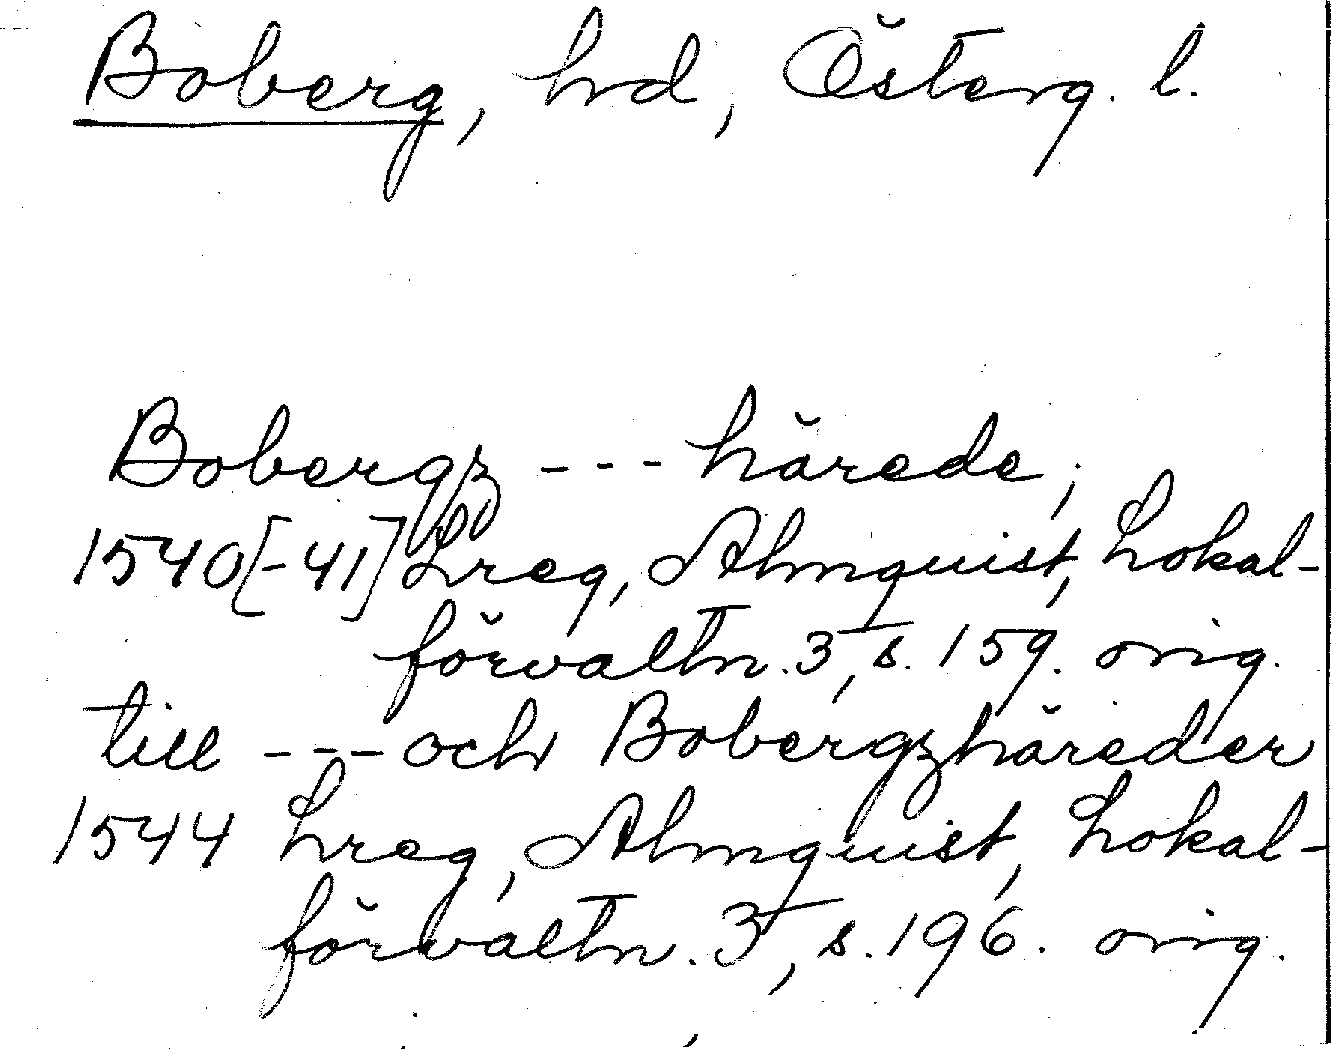 Boberg, hd, Österg. l.
Bobergz --- härede;
1540[-41] Lreg, Almquist, Lokal-
förvaltn. 3, s. 159. orig.
till --- och Bobergzhäreder
1544 Lreg, Almquist, Lokal-
förvaltn. 3, s. 196. orig.